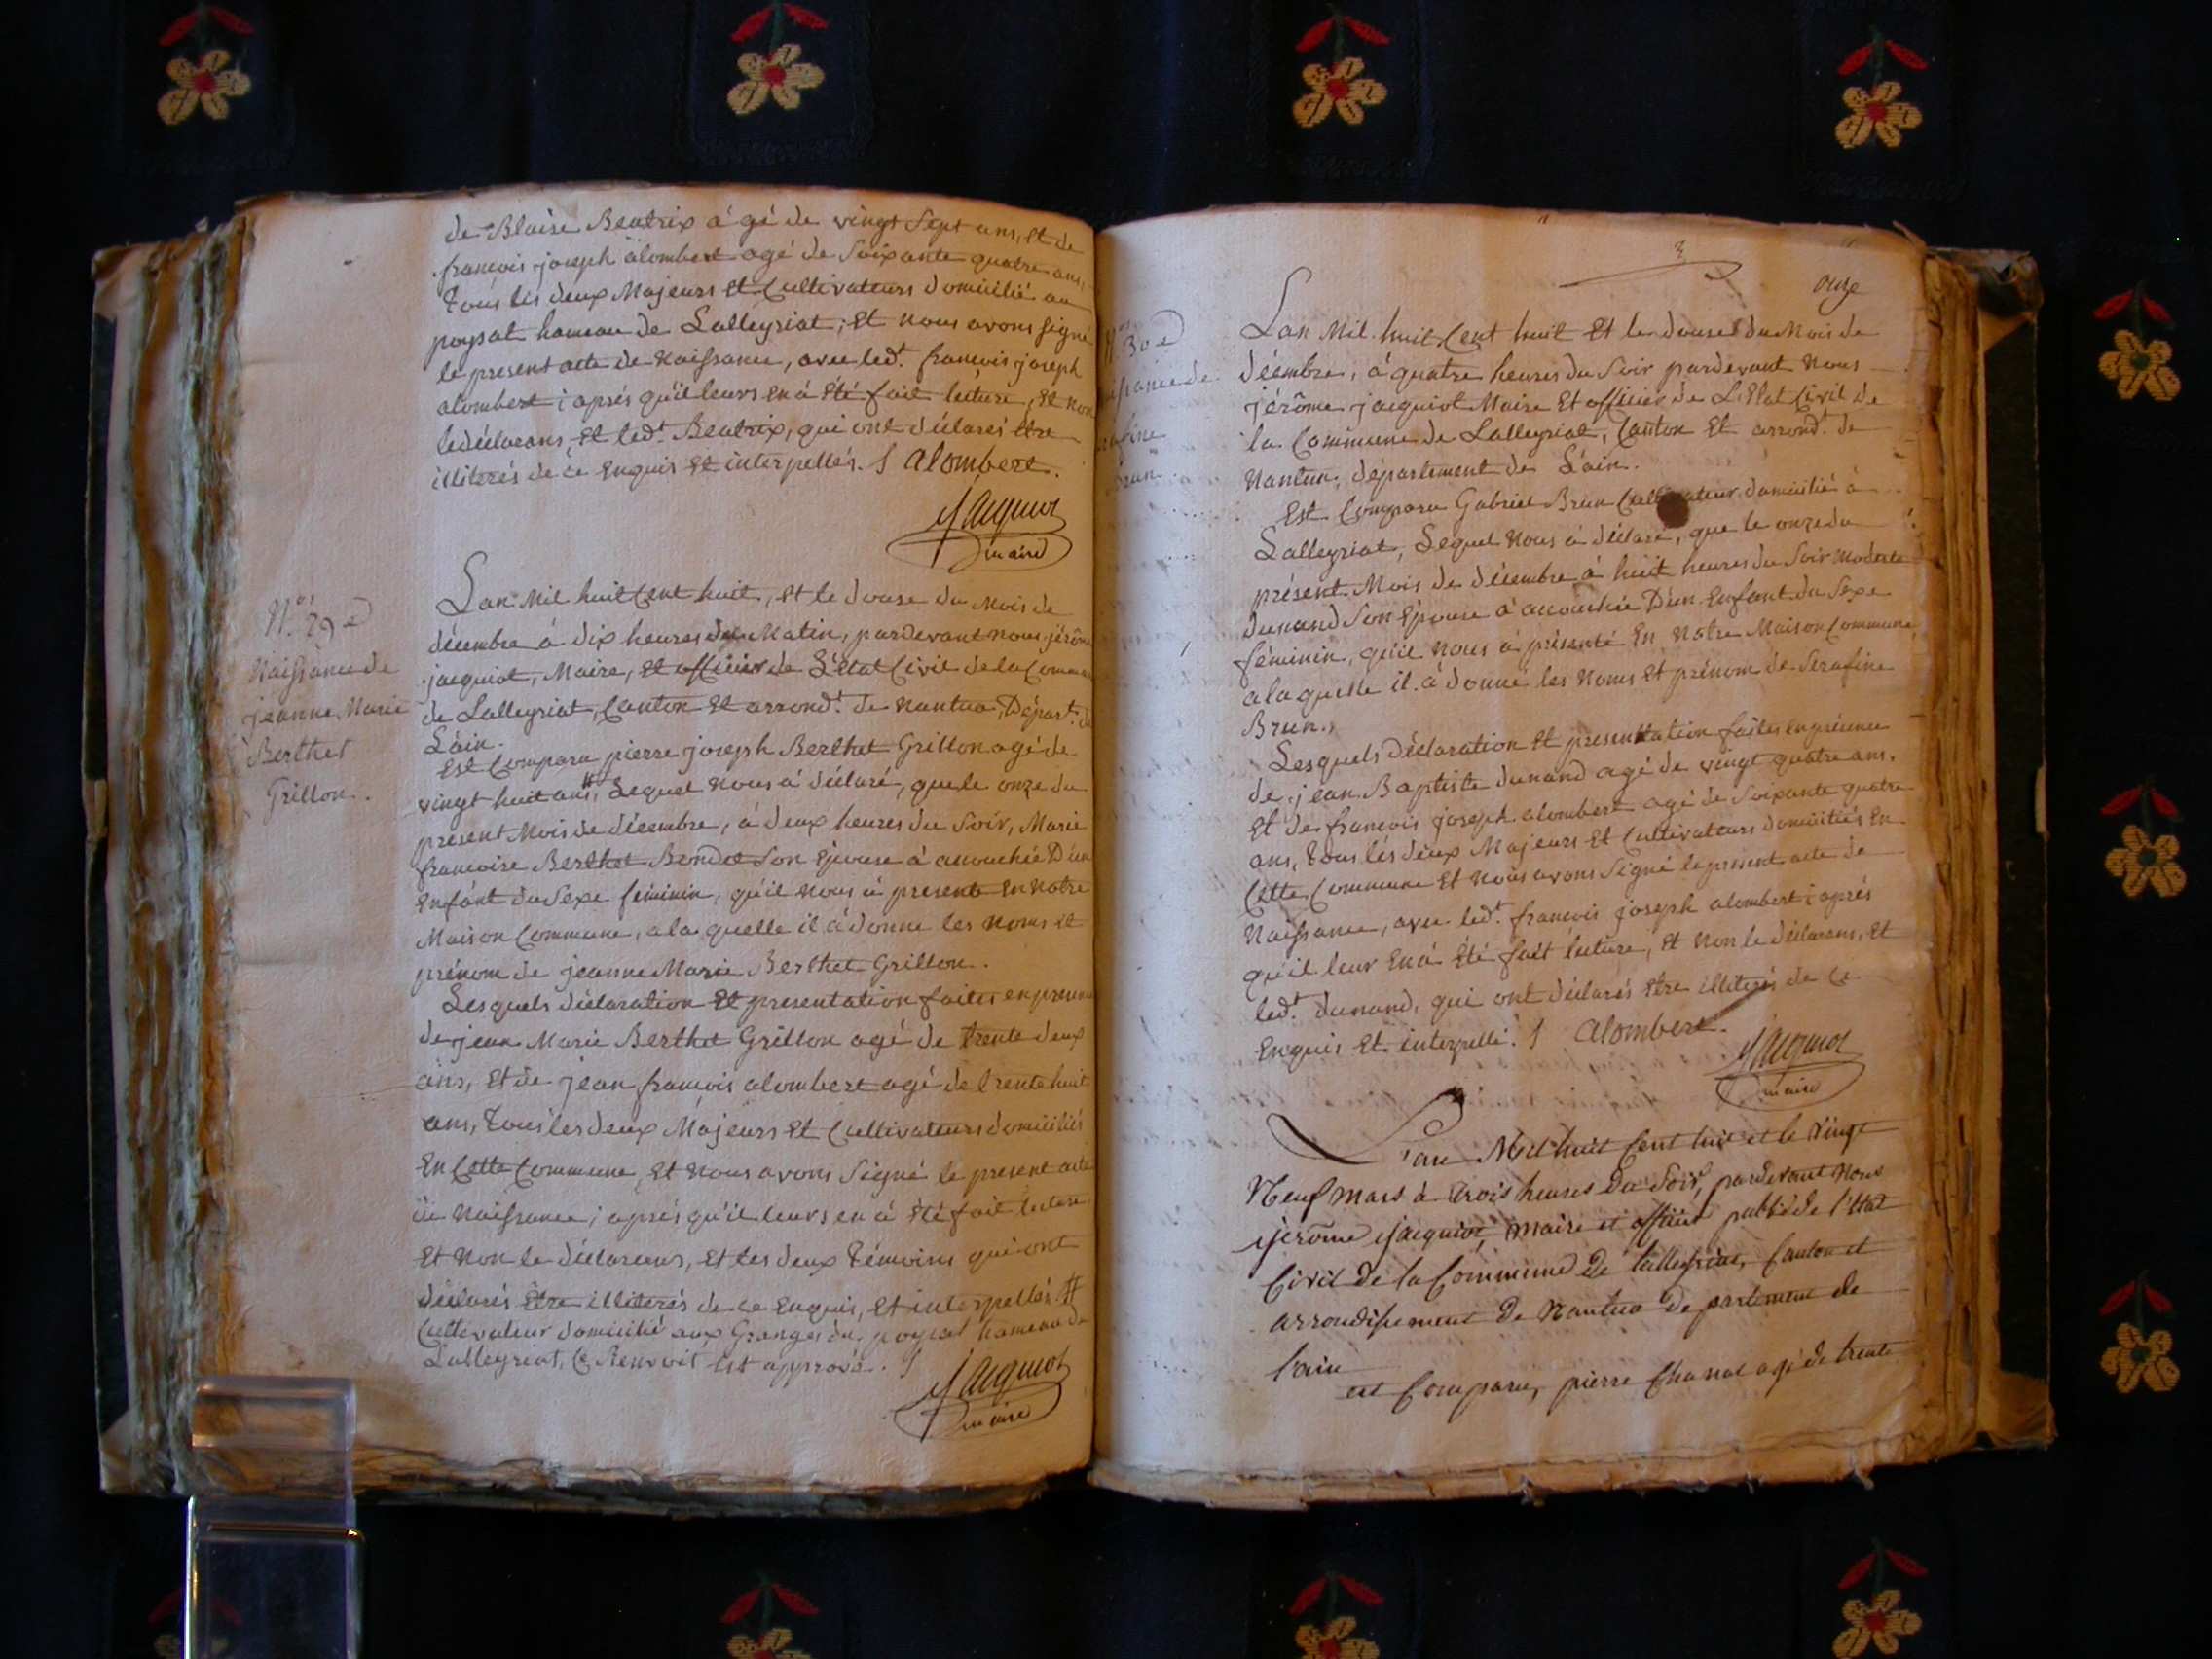 de Blaise Beatrix á gé de vingt Sept ans, et de
francois joseph alombert agé de Soixante quatre ans,
tous les deux Majeurs et Cultivateurs domicilié au
poysat hameau de Lalleyriat; et nous avons signé
le present acte de naissance, avec led.t francois joseph
alombert; aprés qu'il leurs en á Eté fait lecture, et non
le déclarans, et led.t Beatrix, qui ont déclarés etre
illiterés de ce Enquis et interpellés. Alombert.
Jacquiot
maire
N.os 29e
Naissance de
jeanne Marie
Berthet
Grillon.
Lan Mil huit Cent huit, et le douse du mois de
décembre á dix heures du Matin, pardevant nous jérôme
jacquiot, Maire, et officier de L'état Civil de la Commune
de Lalleyriat, Canton et arrond.t de nantua, Départ.t de
Láin.
Est Comparu pierre joseph Berthet Grillon agé de
vingt huit ans, # Lequel nous á déclaré, que le onze du
present Mois de décembre, á deux heures du Soir, Marie
francoise Berthet Bondet Son Epouse á acouchée D'un
Enfant du Sexe féminin, qu'il nous á presenté en notre
Maison Commune, a la quelle il á donné les noms et
prénom de jeanne Marie Berthet Grillon.
Lesquels déclaration et presentation faites en presence
de jean Marie Berthet Grillon agé de trente deux
ans, et de jean francois alombert agé de trente huit
ans, tous les deux Májeurs et Cultivateurs domiciliés
En Cette Commune, et nous avons Signé le present acte
de naissance; aprés qu'il leurs en á été fait lecture
et non le déclarans, et les deux témoins qui ont
déclarés être illiterés de ce Enquis, et interpellés #
Cultivateur domicilié aux Granges du poysat hameau de
Lalleyriat, Ce Renvoit est apprové.
Jacquiot
maire
onze
N.os 30e
Lan Mil huit Cent huit et le douse du Mois de
décembre, á quatre heures du Soir pardevant nous
jérôme jacquiot Maire et officier de L'Etat Civil de
la Commune de Lalleyriat, Canton et arrond.t de
Nantua, département de Láin.
Est Comparu Gabriel Brun Cultivateur domicilié á
Lalleyriat, Lequel nous á déclaré, que le onze du
présent Mois de décembre á huit heures du Soir modeste
dunand Son Epouse á acouchée D'un Enfant du Sexe
féminin, qu'il nous á présenté En notre Maison Commune,
a la quelle il á donné les noms et prénom de Serafine
Brun.
Lesquels déclaration et presentation faites en présence
de jean Baptiste dunand agé de vingt quatre ans,
et de francois joseph alombert agé de Soixante quatre
ans, tous lés deux Majeurs et Cultivateurs domiciliés en
Cette Commune et nous avons Signé le present acte de
Naissance, avec led.t francois joseph alombert; aprés
qu'il leur en á Eté fait lecture, et non le déclarans, et
led.t dunand, qui ont déclarés etre illiterés de ce
enquis et interpellé. Alombert.
Jacquiot
maire
L'an Mil huit Cent huit et le vingt
Neuf mars à trois heures du Soir, pardevant nous
jérôme jacquiot, maire et officier public de l'état
Civil de la Commune de lalleyriat, Canton et
arrondissement de Nantua departement de
l'ain
est Comparu, pierre Chanal agé de trente